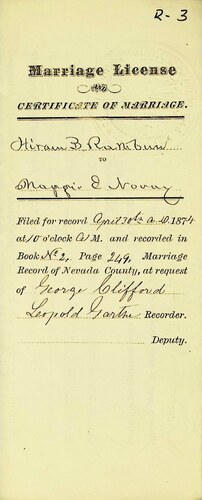 R-3
Marriage License
AND
CERTIFICATE OF MARRIAGE.
Hiram B. Rathbun
TO
Maggie E
Filed for record April 30th A.D. 1874
at 10 o'clock A M. and recorded in
Book No 2, Page 249, Marriage
Record of Nevada County, at request
of George Clifford
Leopold Garthe Recorder.
Deputy.